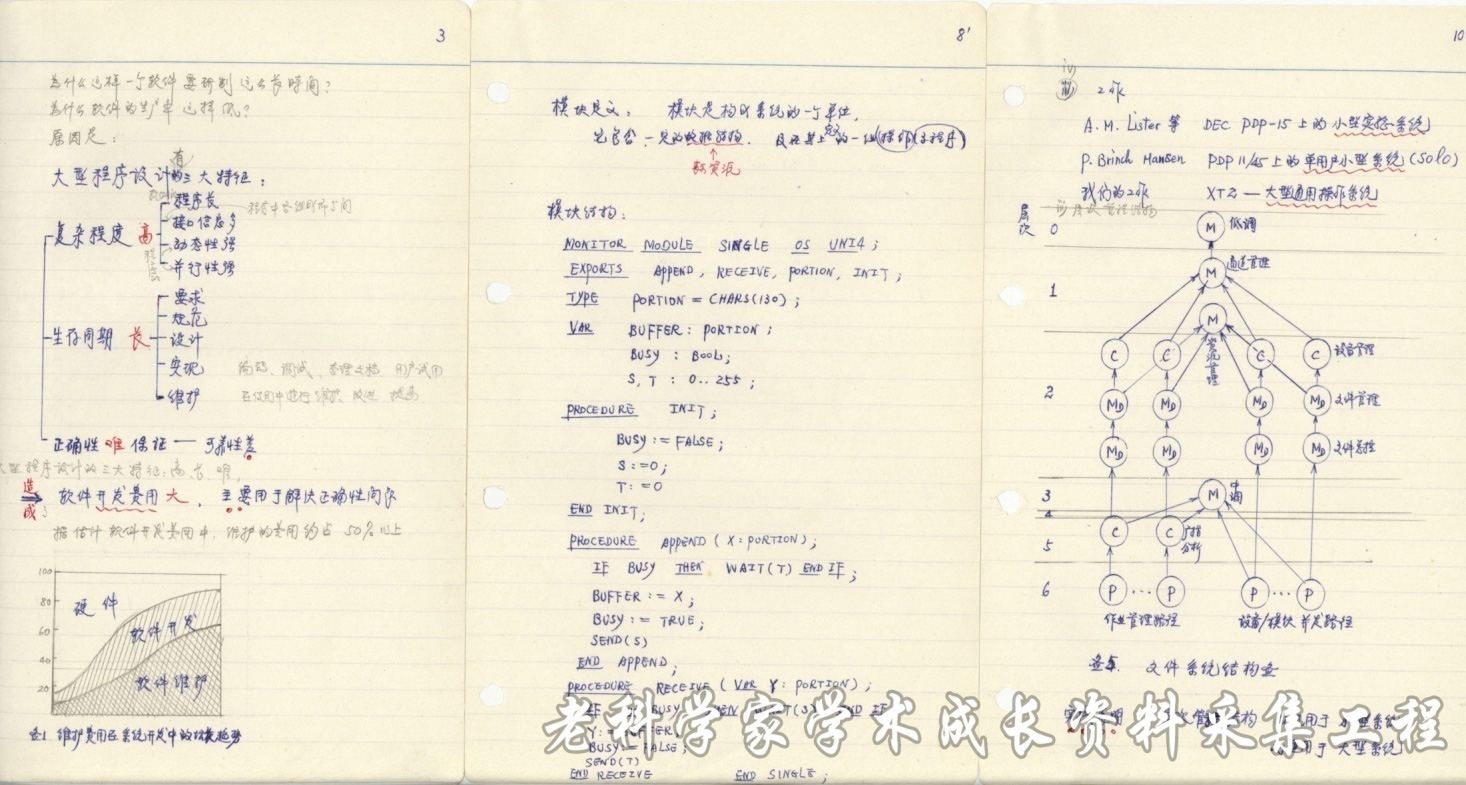 3
为什么这样一个软件要研制这么长时间?
为什么软件的生产率这样低?
原因是:
大型程序设计有三大特征:
复杂程度 高
程序长
接口信息多
动态性强
并行性强
生存周期 长
要求
规范
设计
实现 编码、调试、整理文档 用户试用
维护 在使用中进行维护、改进、提高
正确性 难 保证 — 可靠性差
大型程序设计的三大特征:高、长、难,
造成 软件开发费用大, 主要用于解决正确性问题
据估计软件开发费用中,维护的费用约占 50% 以上
100
80
60
40
20
硬件
软件开发
软件维护
图1. 维护费用在系统开发中的增长趋势
8'
模块定义: 模块是构成系统的一个单位,
它包含一定的数据结构, 及在其上定义的一组(操作)(子程序)
资源
模块结构:
MONITOR MODULE SINGLE OS UNI4;
EXPORTS APPEND, RECEIVE, PORTION, INIT;
TYPE PORTION = CHARS(130);
VAR BUFFER: PORTION;
BUSY : BOOL;
S, T : 0..255;
PROCEDURE INIT;
BUSY := FALSE;
S :=0;
T :=0
END INIT;
PROCEDURE APPEND (X:PORTION);
IF BUSY THEN WAIT(T) END IF;
BUFFER := X;
BUSY := TRUE;
SEND(S)
END APPEND;
PROCEDURE RECEIVE (VAR Y: PORTION);
BUSY:= FALSE;
SEND(T)
END RECEIVE END SINGLE;
10
工作
A.M. Lister 等 DEC PDP-15 上的小型实验系统
P. Brinch Hansen PDP 11/45 上的单用户小型系统 (SOLO)
我们的工作 XT2 — 大型通用操作系统
层次
0 M 低调
1 M 通道管理
M 资源管理
2
C C C C 设备管理
MD MD MD MD 文件管理
MD MD MD MD
3 M 中调
4
5 C C 分析
6 P … P P … P
作业管理路径 设备/模块 并发路径
图5. 文件系统结构图
老科学家学术成长资料采集工程